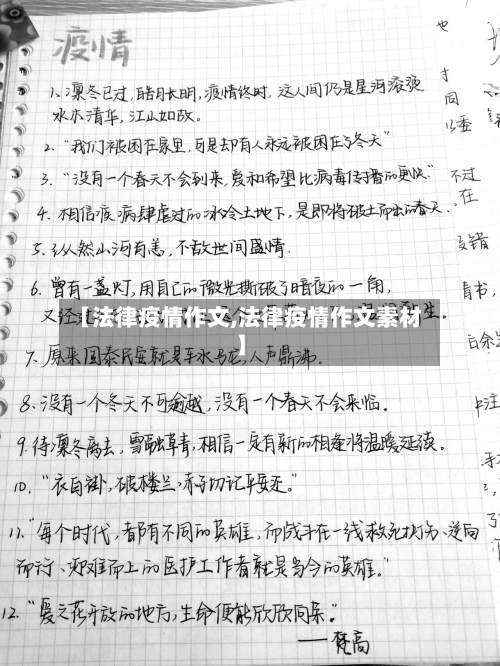 疫情
1、凛冬已过,皓月长明,疫情终时,这人间仍是星河滚烫
水木清华,江山如故。
2、“我们被困在家里,可是却有人永远被困在了冬天”
3、“没有一个春天不会到来,爱和希望比病毒传播的更快”
4、相信疫病肆虐过的冰冷土地下,是即将破土而出的春天.
5、纵然山河有恙,不敌世间盛情.
6、曾有一盏灯,用自己的微光撕破了暗夜的一角,
又经
【法律疫情作文,法律疫情作文素材
】
生。
7、原来国泰民安就是车水马龙,人声鼎沸.
8、没有一个冬天不可逾越,没有一个春天不会来临.
9、待凛冬离去,雪融草青,相信一定有新的相逢将温暖延续.
10、“衣白褂,破楼兰,赤子切记平安还。”
11、“每个时代,都有不同的英雄,而战斗在一线救死扶伤、逆向
而行、迎难而上的医护工作者就是当今的英雄。”
12、“爱之花开放的地方,生命便能欣欣向荣。”
——梵高
也
才
同
以委
不过
在
青书,